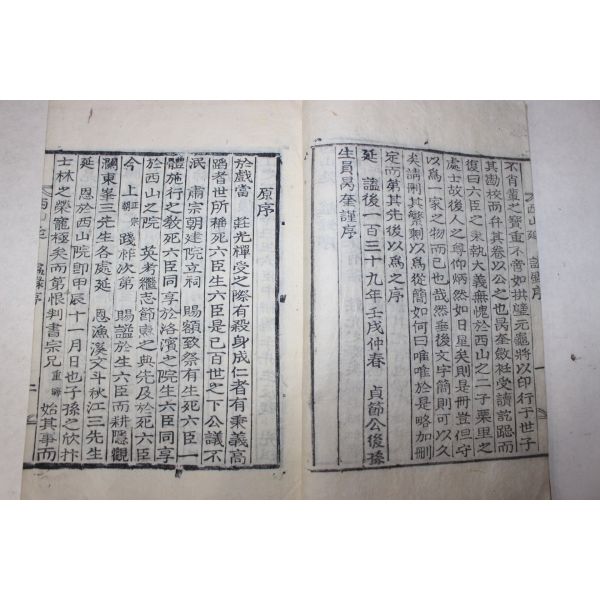 不肖輩之寶重不啻如拱璧元龜將以印行于世子
其勘校而弁其卷以公之也昺奎斂衽受讀訖跽而
復曰六臣之秉執大義無愧於西山之二子栗里之
處士故後人之尊仰炳然如日星矣則是冊豈但守
以爲一家之物而已也哉然垂後文字簡則可以久
矣請刪其繁剩以爲從簡如何曰唯唯於是略加刪
定而第其先後以爲之序
延 諡後一百三十九年壬戌仲春 貞節公後孫
生員昺奎謹序
西山延 諡錄序
一
原序
於戲當 莊光禪受之際有殺身成仁者有秉義高
蹈者世所稱死六臣生六臣是已百世之下公議不
泯 肅宗朝建院立祠 賜額致祭有生六臣一
體施行之教死六臣同享於洛濱之院生六臣同享
於西山之院 英考繼志節惠之典先及於死六臣
今 上朝正宗踐祚次第 賜諡於生六臣而耕隱觀
瀾東峯三先生各處延 恩漁溪文斗秋江三先生
延 恩於西山院卽甲辰十一月日也子孫之欣抃
士林之榮寵極矣而第恨判書宗兄重晦始其事而